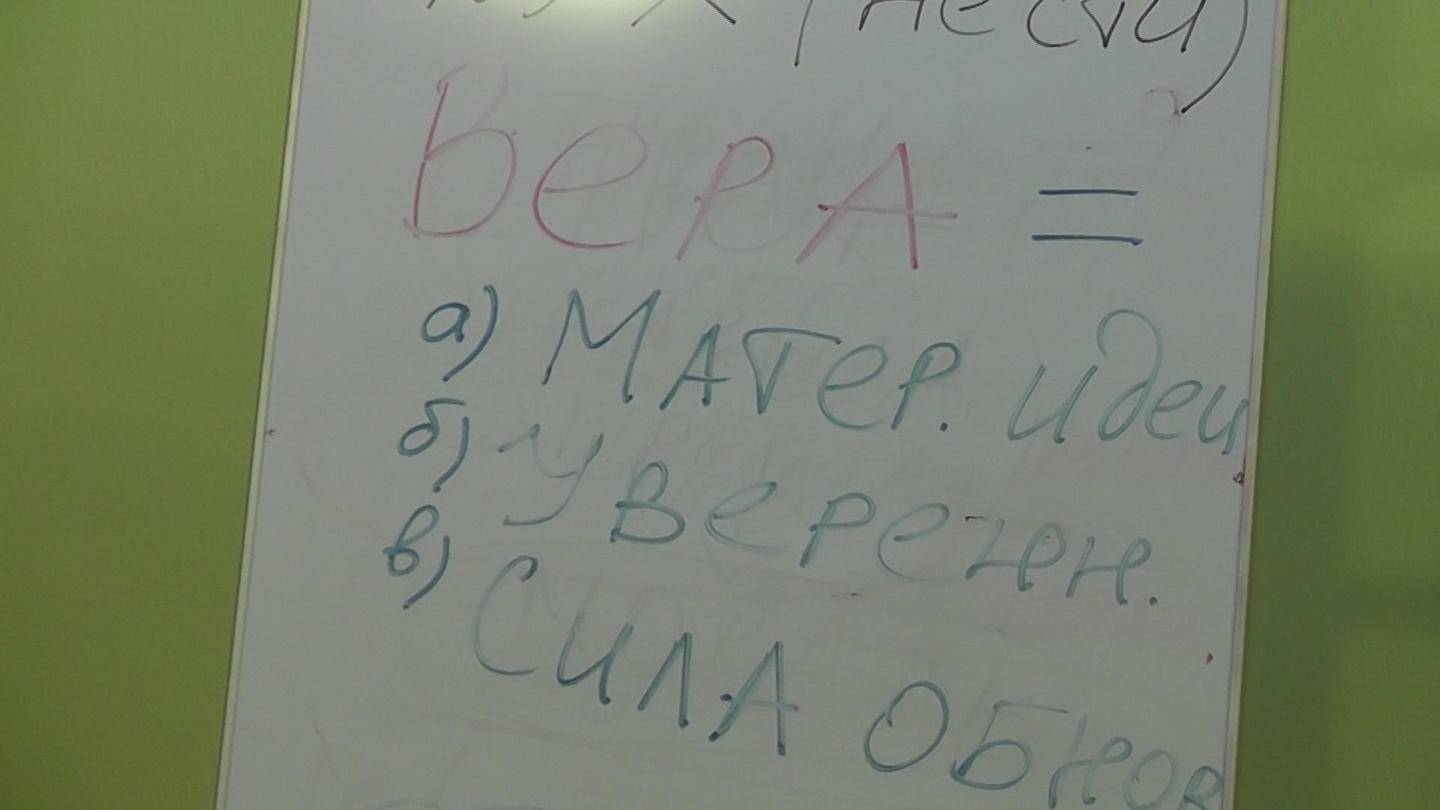 (нести)
Вера =
а) Матер. идеи
б) Уверенн.
в) Сила обнов